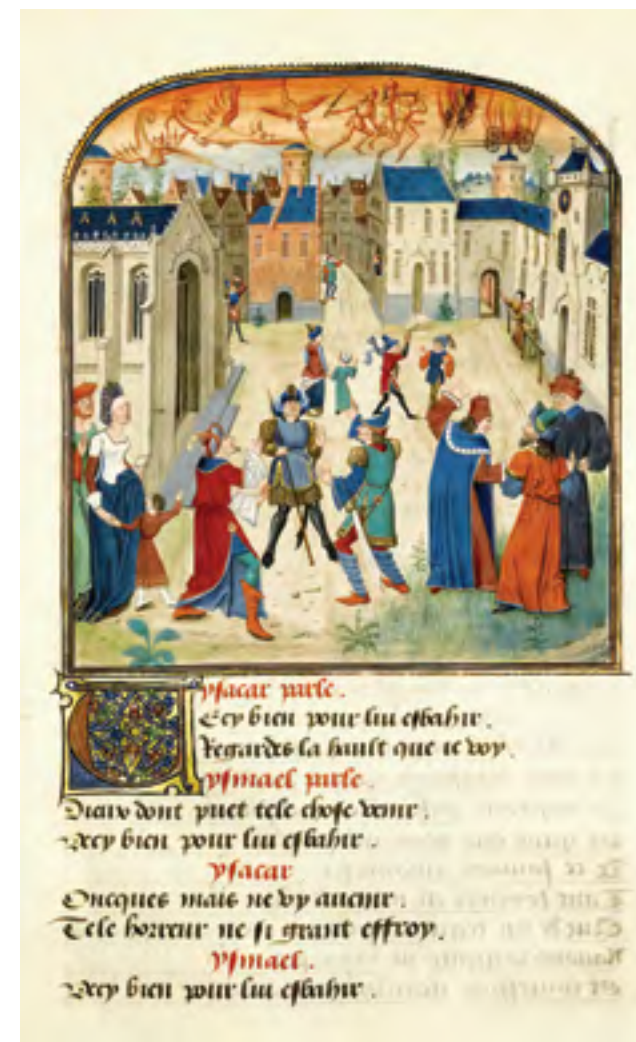 ysacar parle.
Cecy bien pour lui esbahir.
Regardes la hault que ie voy.
ysmael parle.
Dieux dont puet tele chose venir.
Vecy bien pour lui esbahir.
ysacar
Oncques mais ne vy aucunir.
Tele horreur ne si grant effroy.
ysmael.
Vecy bien pour lui esbahir.